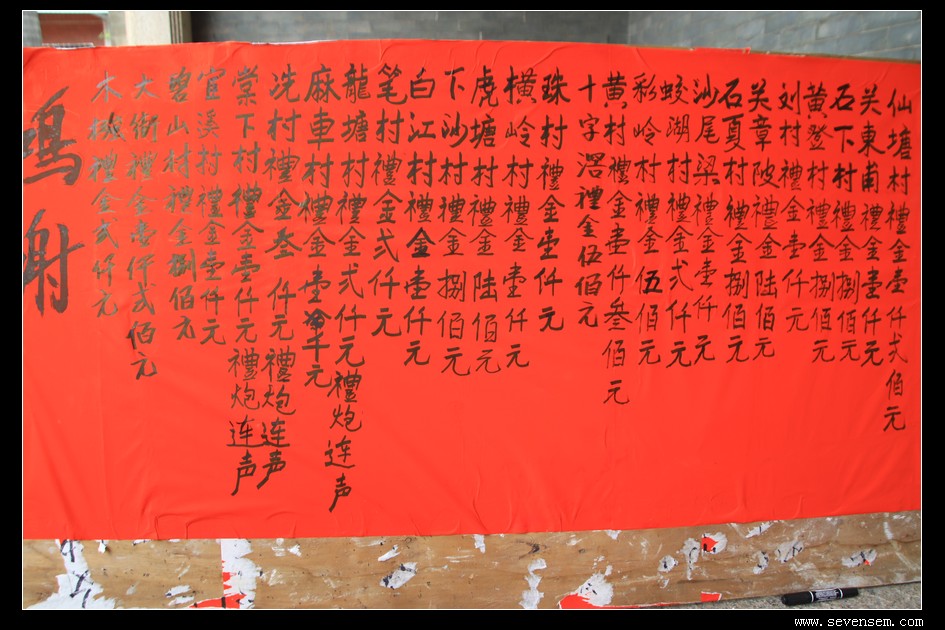 鸣谢
木禮金弍仟元
大街禮金壹仟弍佰元
碧山村禮金捌佰元
官溪村禮金壹仟元
棠下村禮金壹仟元禮炮连声
冼村禮金叁仟元禮炮连声
麻車村禮金壹仟元
龍塘村禮金弍仟元禮炮连声
笔村禮金弍仟元
白江村禮金壹仟元
下沙村禮金捌佰元
虎塘村禮金陆佰元
横岭村禮金壹仟元
珠村禮金壹仟元
十字滘禮金伍佰元
黄村禮金壹仟叁佰元
彩岭村禮金五佰元
蛟湖村禮金弍仟元
沙尾梁禮金壹仟元
石夏村禮金捌佰元
关章陂禮金陆佰元
刘村禮金壹仟元
黄登村禮金捌佰元
石下村禮金捌佰元
关東南禮金壹仟元
仙塘村禮金壹仟弍佰元
www.sevensem.com